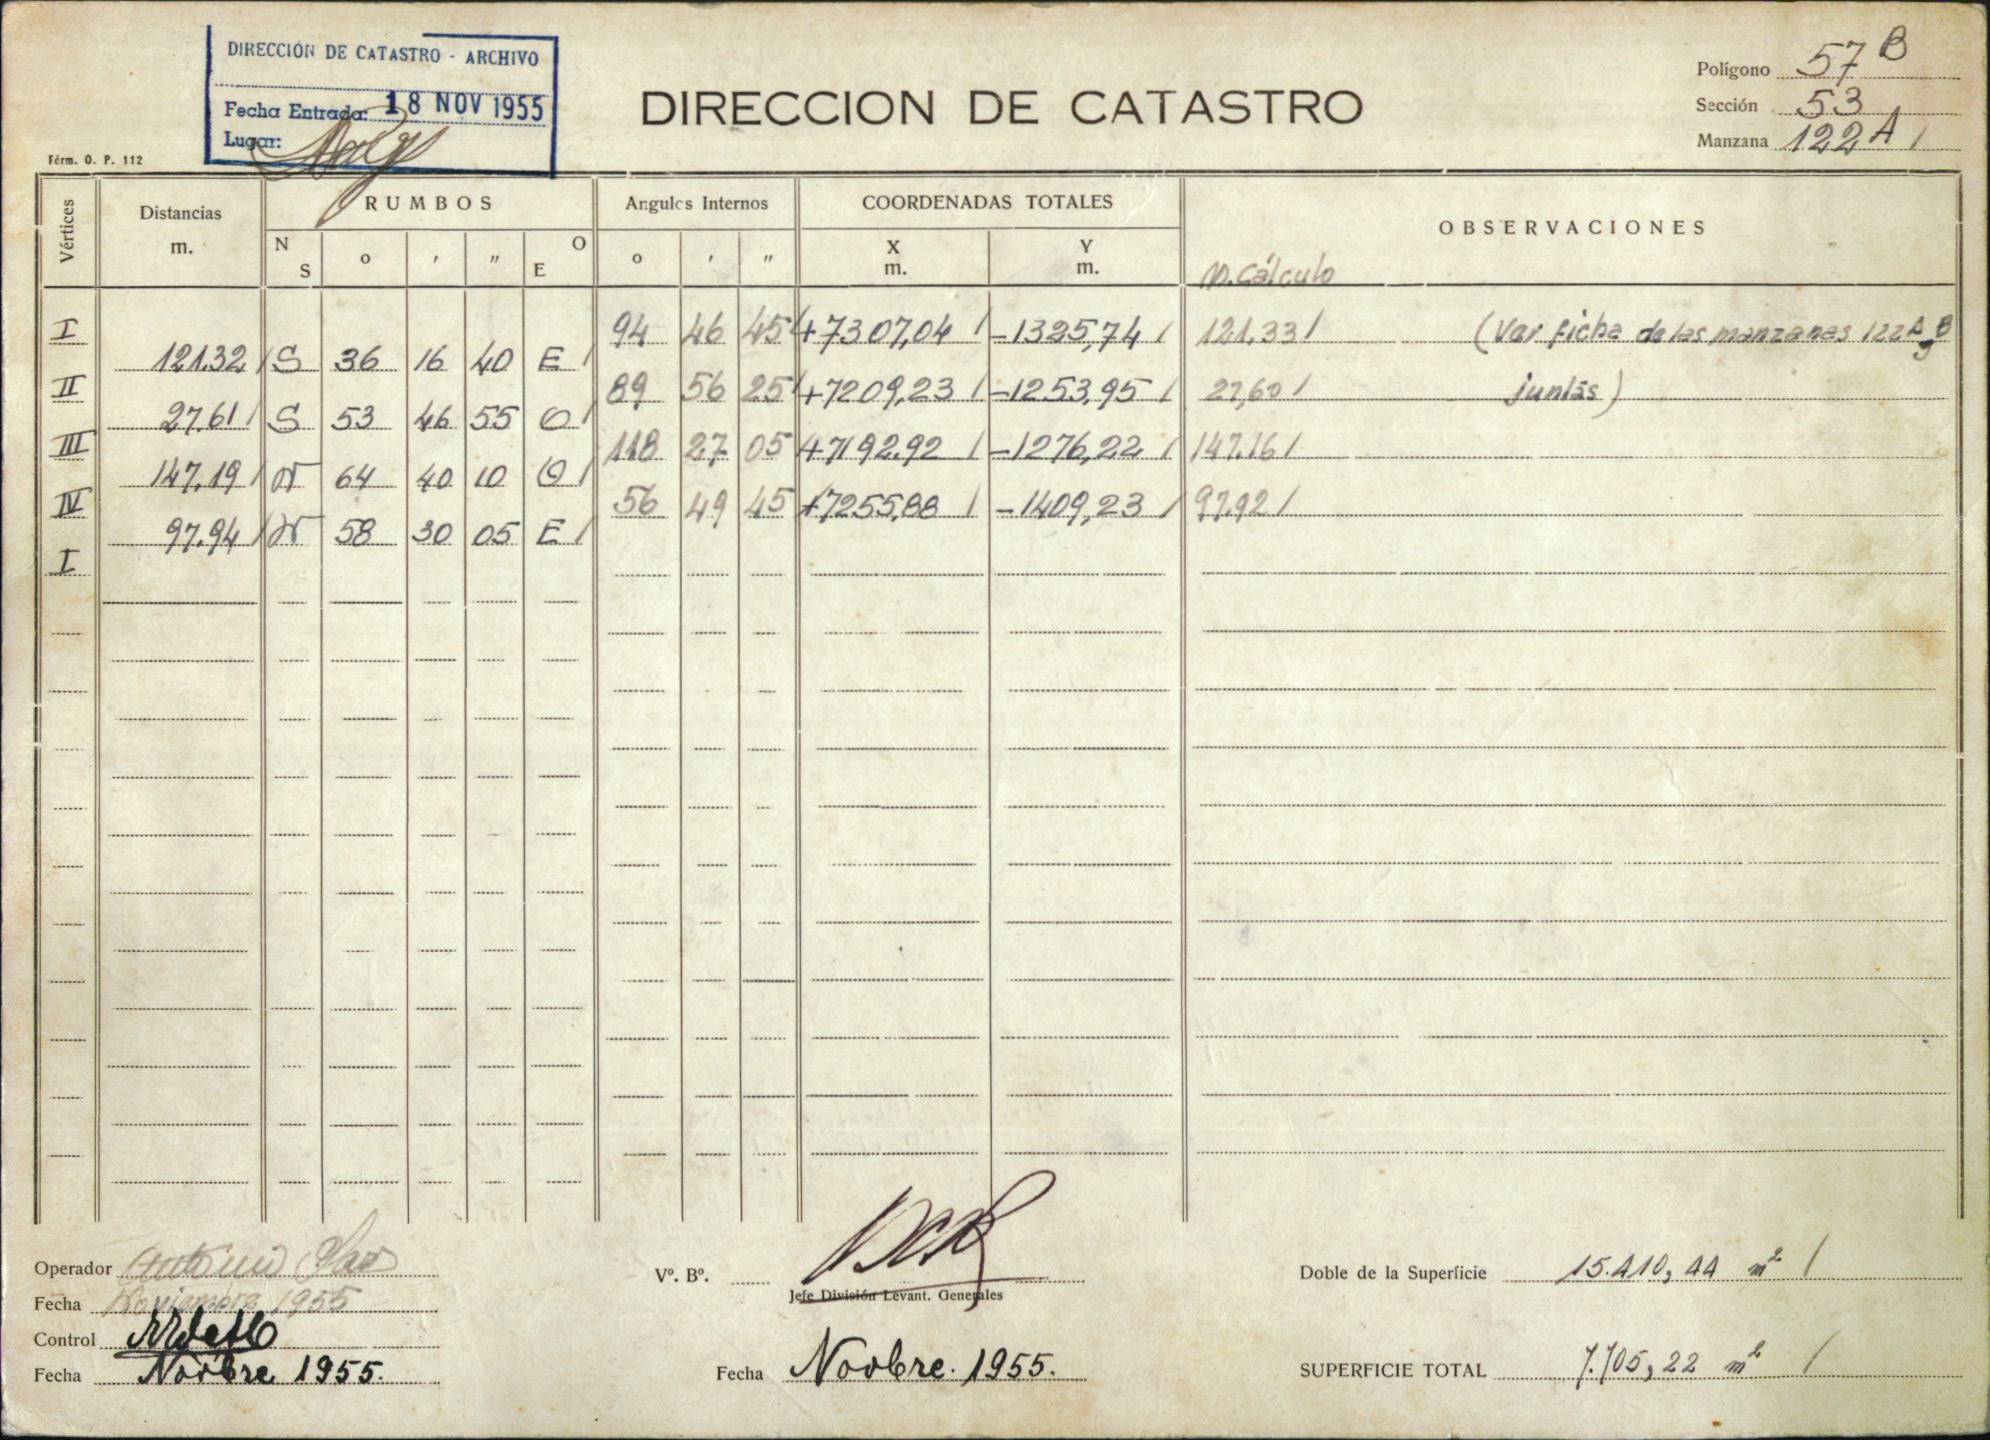 DIRECCIÓN DE CATASTRO - ARCHIVO
Fecha Entrada: 18 NOV 1955
Lugar:
Fórm. O. P. 112
DIRECCION DE CATASTRO
Polígono 57 B
Sección 53
Manzana 122 A /
Vértices
Distancias
m.
RUMBOS
N
S
o
'
"
O
E
Angulos Internos
o
'
"
COORDENADAS TOTALES
X
m.
Y
m.
OBSERVACIONES
M. Cálculo
I 94 46 45 +7307,04 / -1325,74 / 121.33 / (Ver ficha de las manzanas 122 A y B
121.32 / S 36 16 40 E /
II 89 56 25 +7209,23 / -1253,95 / 27,60 / juntas)
27.61 / S 53 46 55 O /
III 118 27 05 +7192.92 / -1276,22 / 147.16 /
147.19 / N 64 40 10 O /
IV 56 49 45 +7255,88 / -1409,23 / 97.92 /
97.94 / N 58 30 05 E /
I
Operador Antonio
Fecha Noviembre 1955
Control
Fecha Novbre 1955.
Vº. Bº.
Jefe División Levant. Generales
Fecha Novbre. 1955.
Doble de la Superficie 15.410,44 m² /
SUPERFICIE TOTAL 7.705,22 m² /